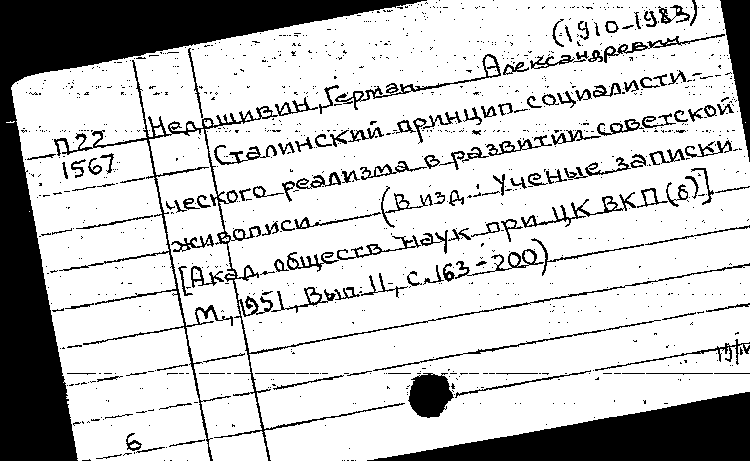 (1910-1983)
П22 Недошивин, Герман Александрович
1567 Сталинский принцип социалисти-
ческого реализма в развитии советской
живописи. (В изд.: Ученые записки
[Акад. обществ. наук при ЦК ВКП(б)]
М., 1951, Вып. 11, с. 163-200)
6